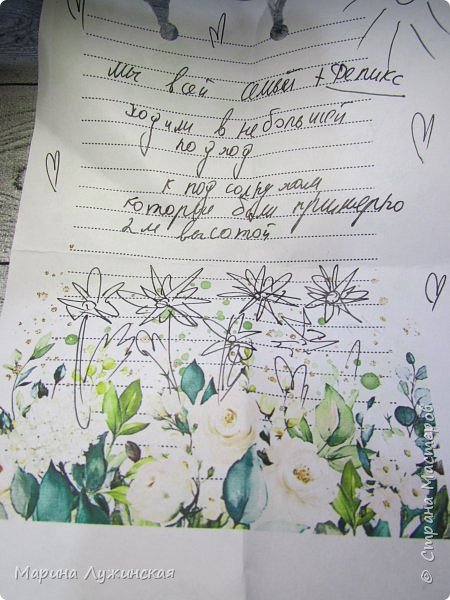 Мы всей семьей + Феликс
ходили в небольшой
поход
к подсолнухам
которые были примерно
2 м высотой
Марина Лужинская
© Страна Мастеров